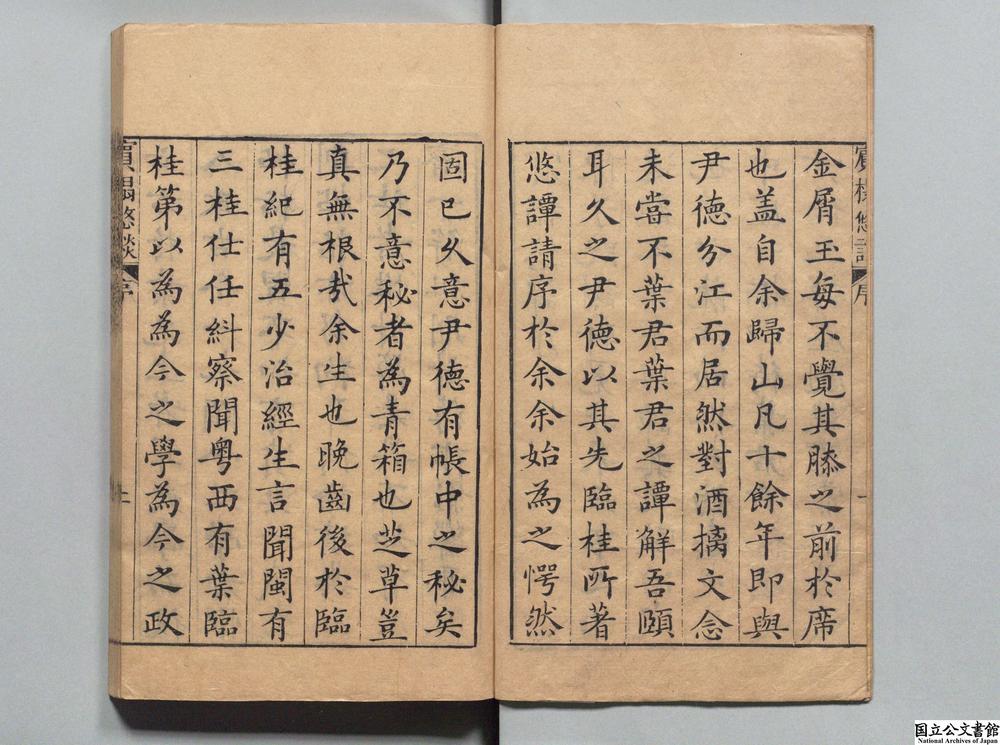 金屑玉每不覺其膝之前於席
也盖自余歸山凡十餘年即與
尹德分江而居然對酒摛文念
未嘗不葉君葉君之譚解吾頤
耳久之尹德以其先臨桂所著
悠譚請序於余余始為之愕然
固已久意尹德有帳中之秘矣
乃不意秘者為青箱也芝草豈
真無根㢤余生也晚齒後於臨
桂紀有五少治經生言聞閩有
三桂仕任糾察聞粤西有葉臨
桂第以為為今之學為今之政
悠談
序
二
国立公文書館
National Archives of Japan